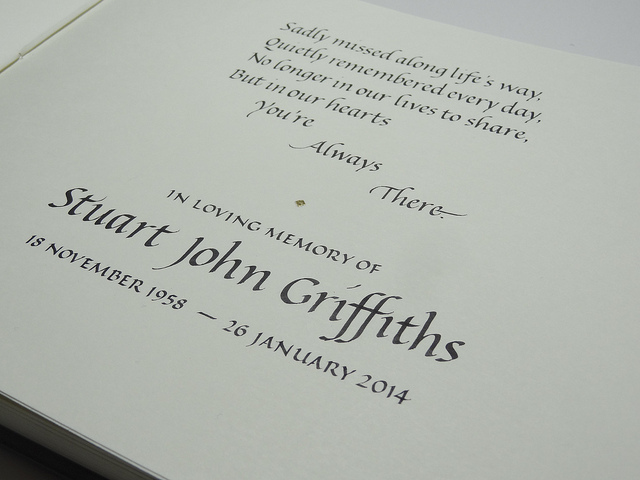 Sadly missed along life's way,
Quietly remembered every day,
No longer in our lives to share,
But in our hearts
You're
Always
There.
IN LOVING MEMORY OF
Stuart John Griffiths
18 NOVEMBER 1958 — 26 JANUARY 2014